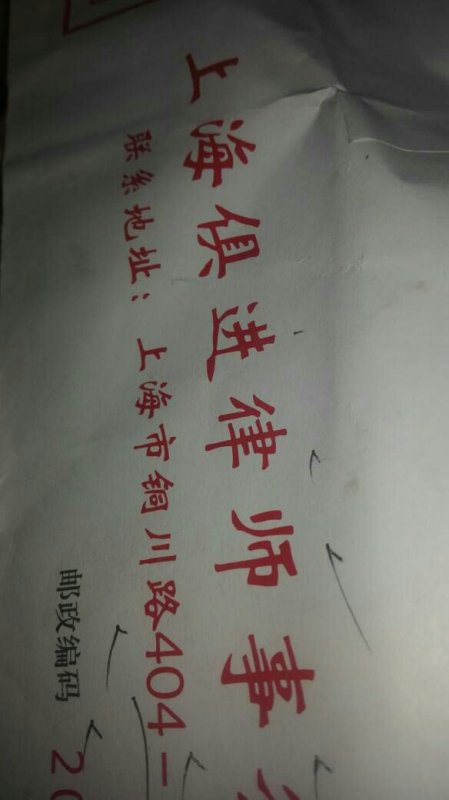 上海俱进律师事务
联系地址：上海市铜川路404-
邮政编码 20